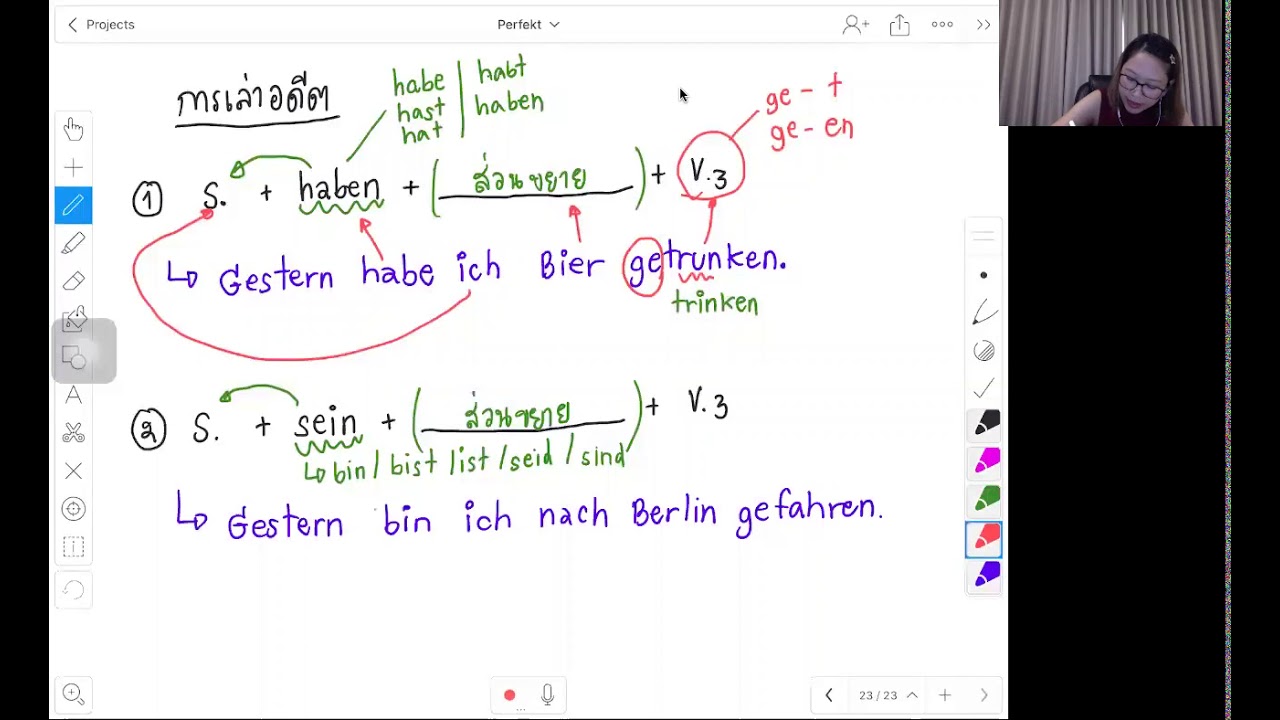 Projects
Perfekt
การเล่าอดีต
habe | habt
hast | haben
hat
ge - t
ge - en
① S. + haben + ( ส่วนขยาย ) + V.3
↳ Gestern habe ich Bier getrunken.
trinken
② S. + sein + ( ส่วนขยาย ) + V.3
↳ bin / bist / ist / seid / sind
↳ Gestern bin ich nach Berlin gefahren.
A
23 / 23